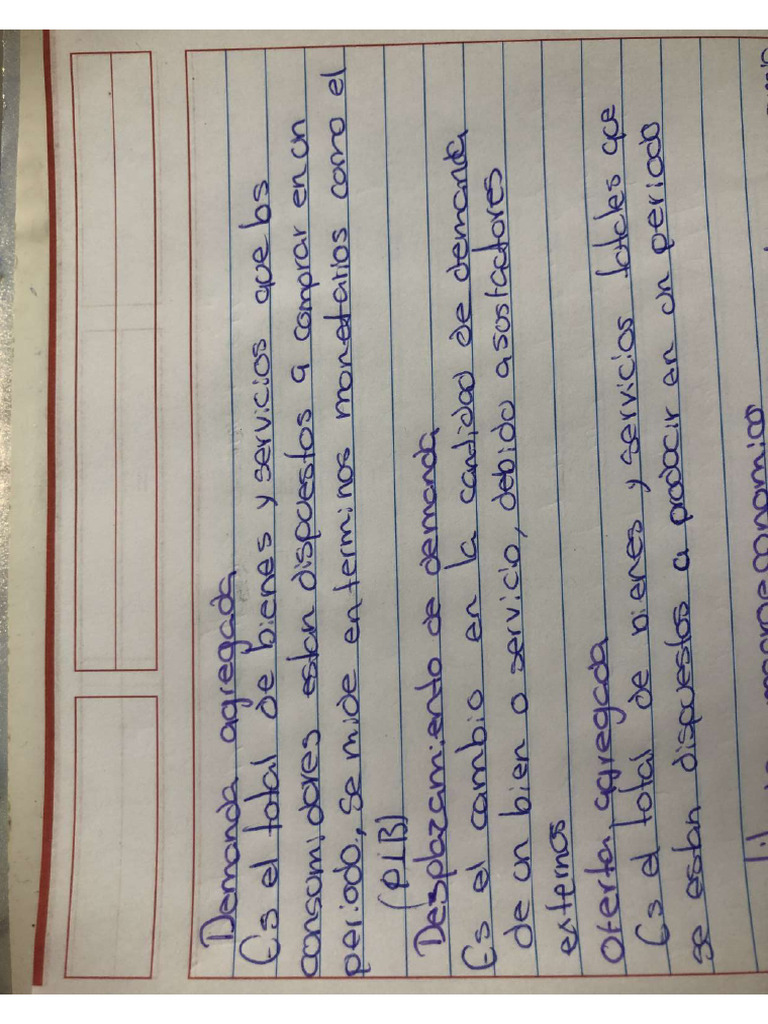 Demanda agregada
Es el total de bienes y servicios que los
consumidores estan dispuestos a comprar en un
periodo, se mide en terminos monetarios como el
(PIB)
Desplazamiento de demanda
Es el cambio en la cantidad de demanda
de un bien o servicio, debido a sus factores
externos
Oferta agregada
Es el total de bienes y servicios totales que
se estan dispuestos a producir en un periodo
macroeconomico